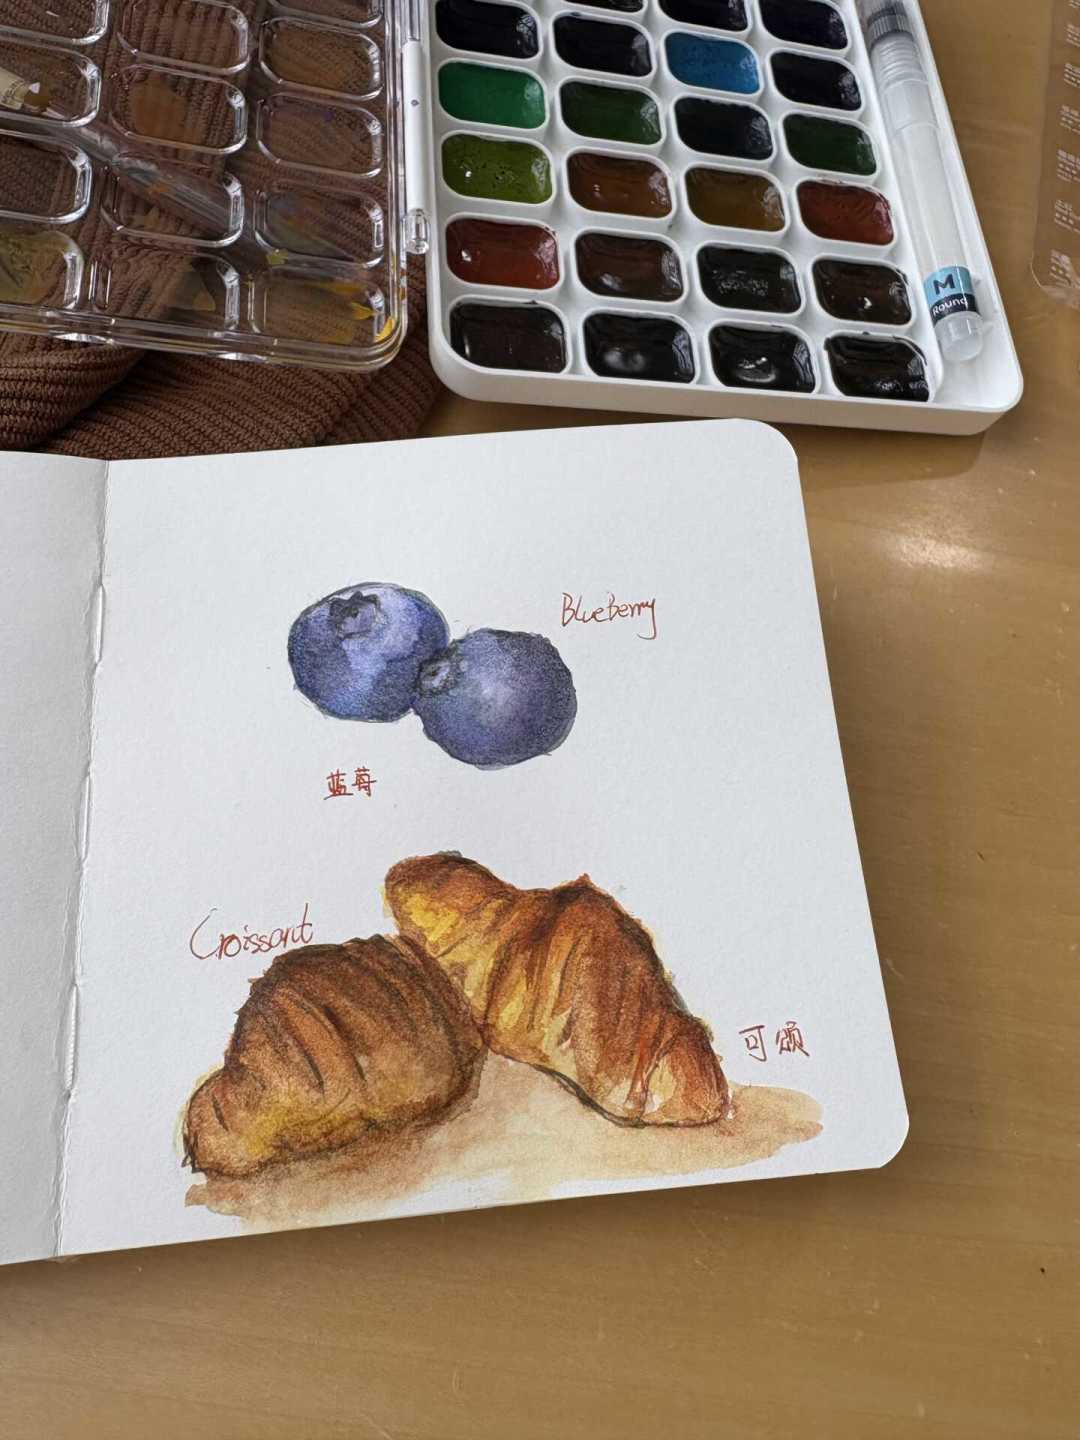 M
Round
BlueBerry
蓝莓
Croissant
可颂